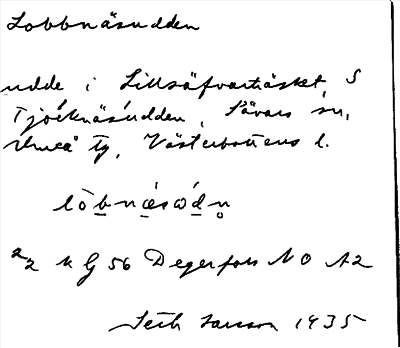 Lobbnäsudden
udde i Lillsäfvarträsket, S
Tjäcknäsudden, Sävars sn,
Umeå tg, Västerbottens l.
lòbnæswdn̥
2/2 k G 56 Degerfors NO A2
Seth Larsson 1935